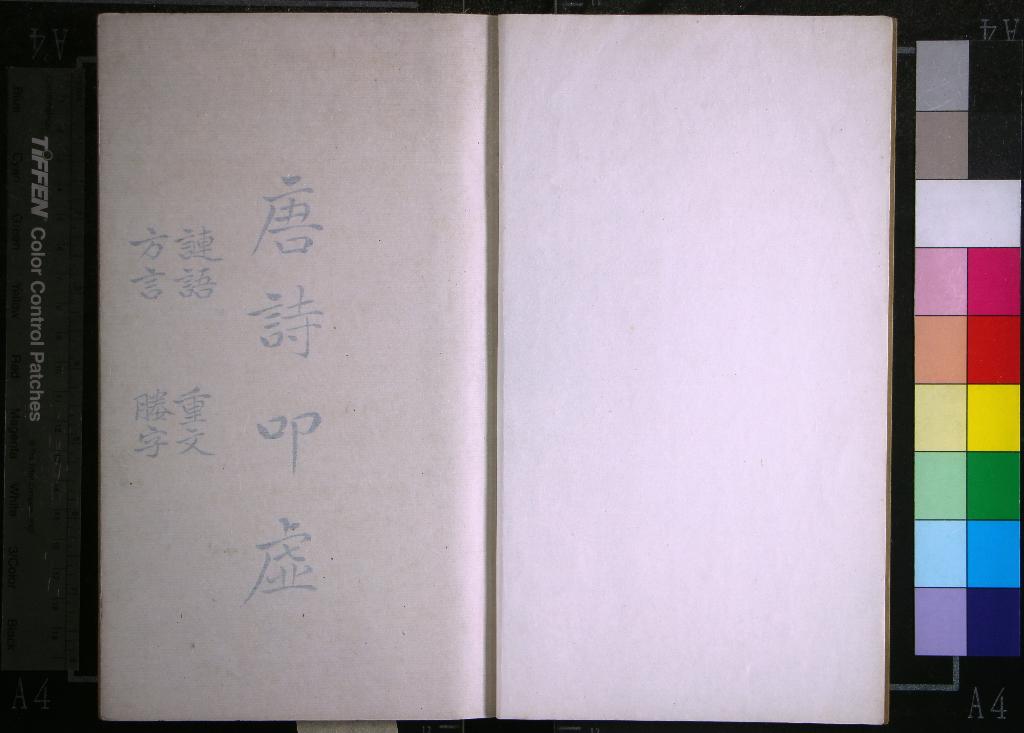 唐詩叩虛
謰語
方言
重文
賸字
TIFFEN Color Control Patches
A4
A4
A4
A4